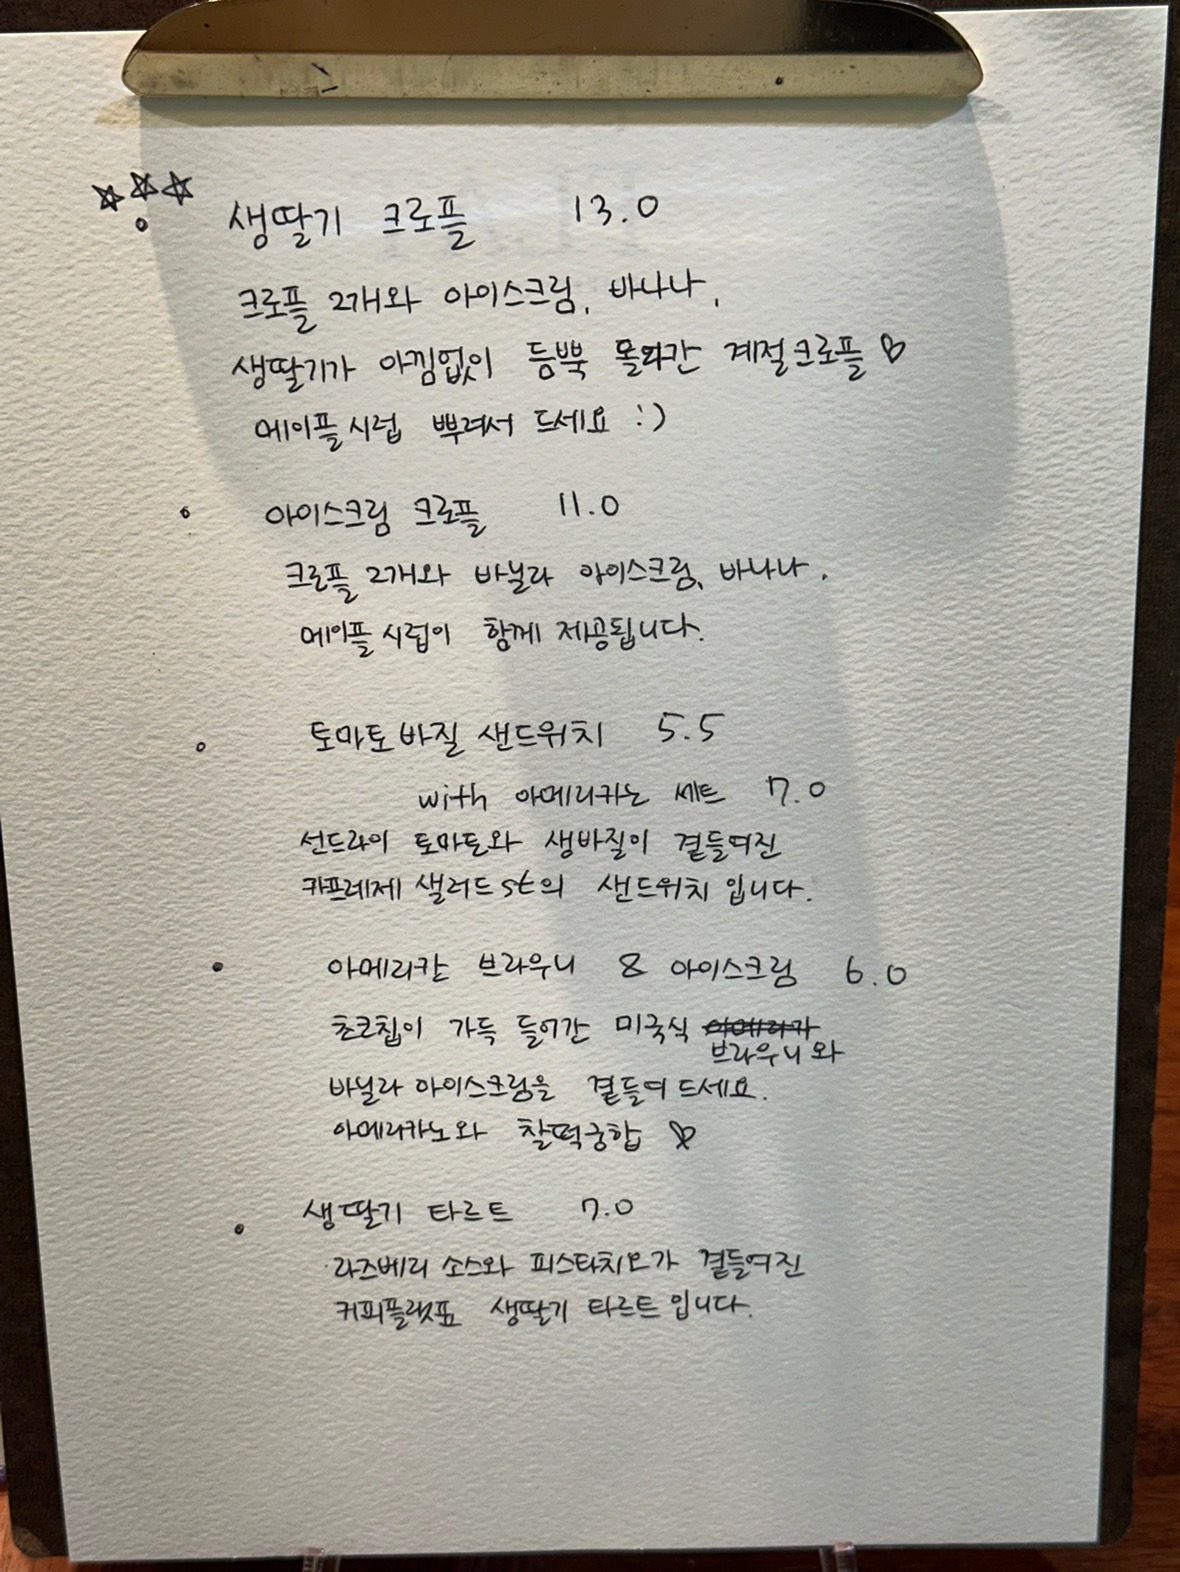 생딸기 크로플 13.0
크로플 2개와 아이스크림, 바나나,
생딸기가 아낌없이 듬뿍 올라간 계절크로플 ♡
메이플시럽 뿌려서 드세요 :)
아이스크림 크로플 11.0
크로플 2개와 바닐라 아이스크림, 바나나,
메이플시럽이 함께 제공됩니다.
토마토바질 샌드위치 5.5
with 아메리카노 세트 7.0
선드라이 토마토와 생바질이 곁들여진
카프레제 샐러드st의 샌드위치입니다.
아메리칸 브라우니 & 아이스크림 6.0
초코칩이 가득 들어간 미국식
브라우니와
바닐라 아이스크림을 곁들여 드세요.
아메리카노와 찰떡궁합 ♡
생딸기 타르트 7.0
라즈베리 소스와 피스타치오가 곁들여진
커피플랫표 생딸기 타르트입니다.